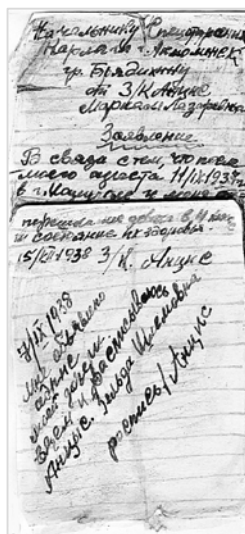 Начальнику Спецотделения
Карлага г. Акмолинск
гр. Брядихину
от З/К Анцис
Маркалы Лазаревны
Заявление
В связи с тем, что после
моего ареста 11/IX 1937г.
в г. и меня
девочек в
и состояние их здоровья.
15/VII 1938 З/К. Анцис
7/IX 1938
мне объявлено
адрес
моей дочери.
в чем и расписываюсь
Анцис.
роспись/Анцис